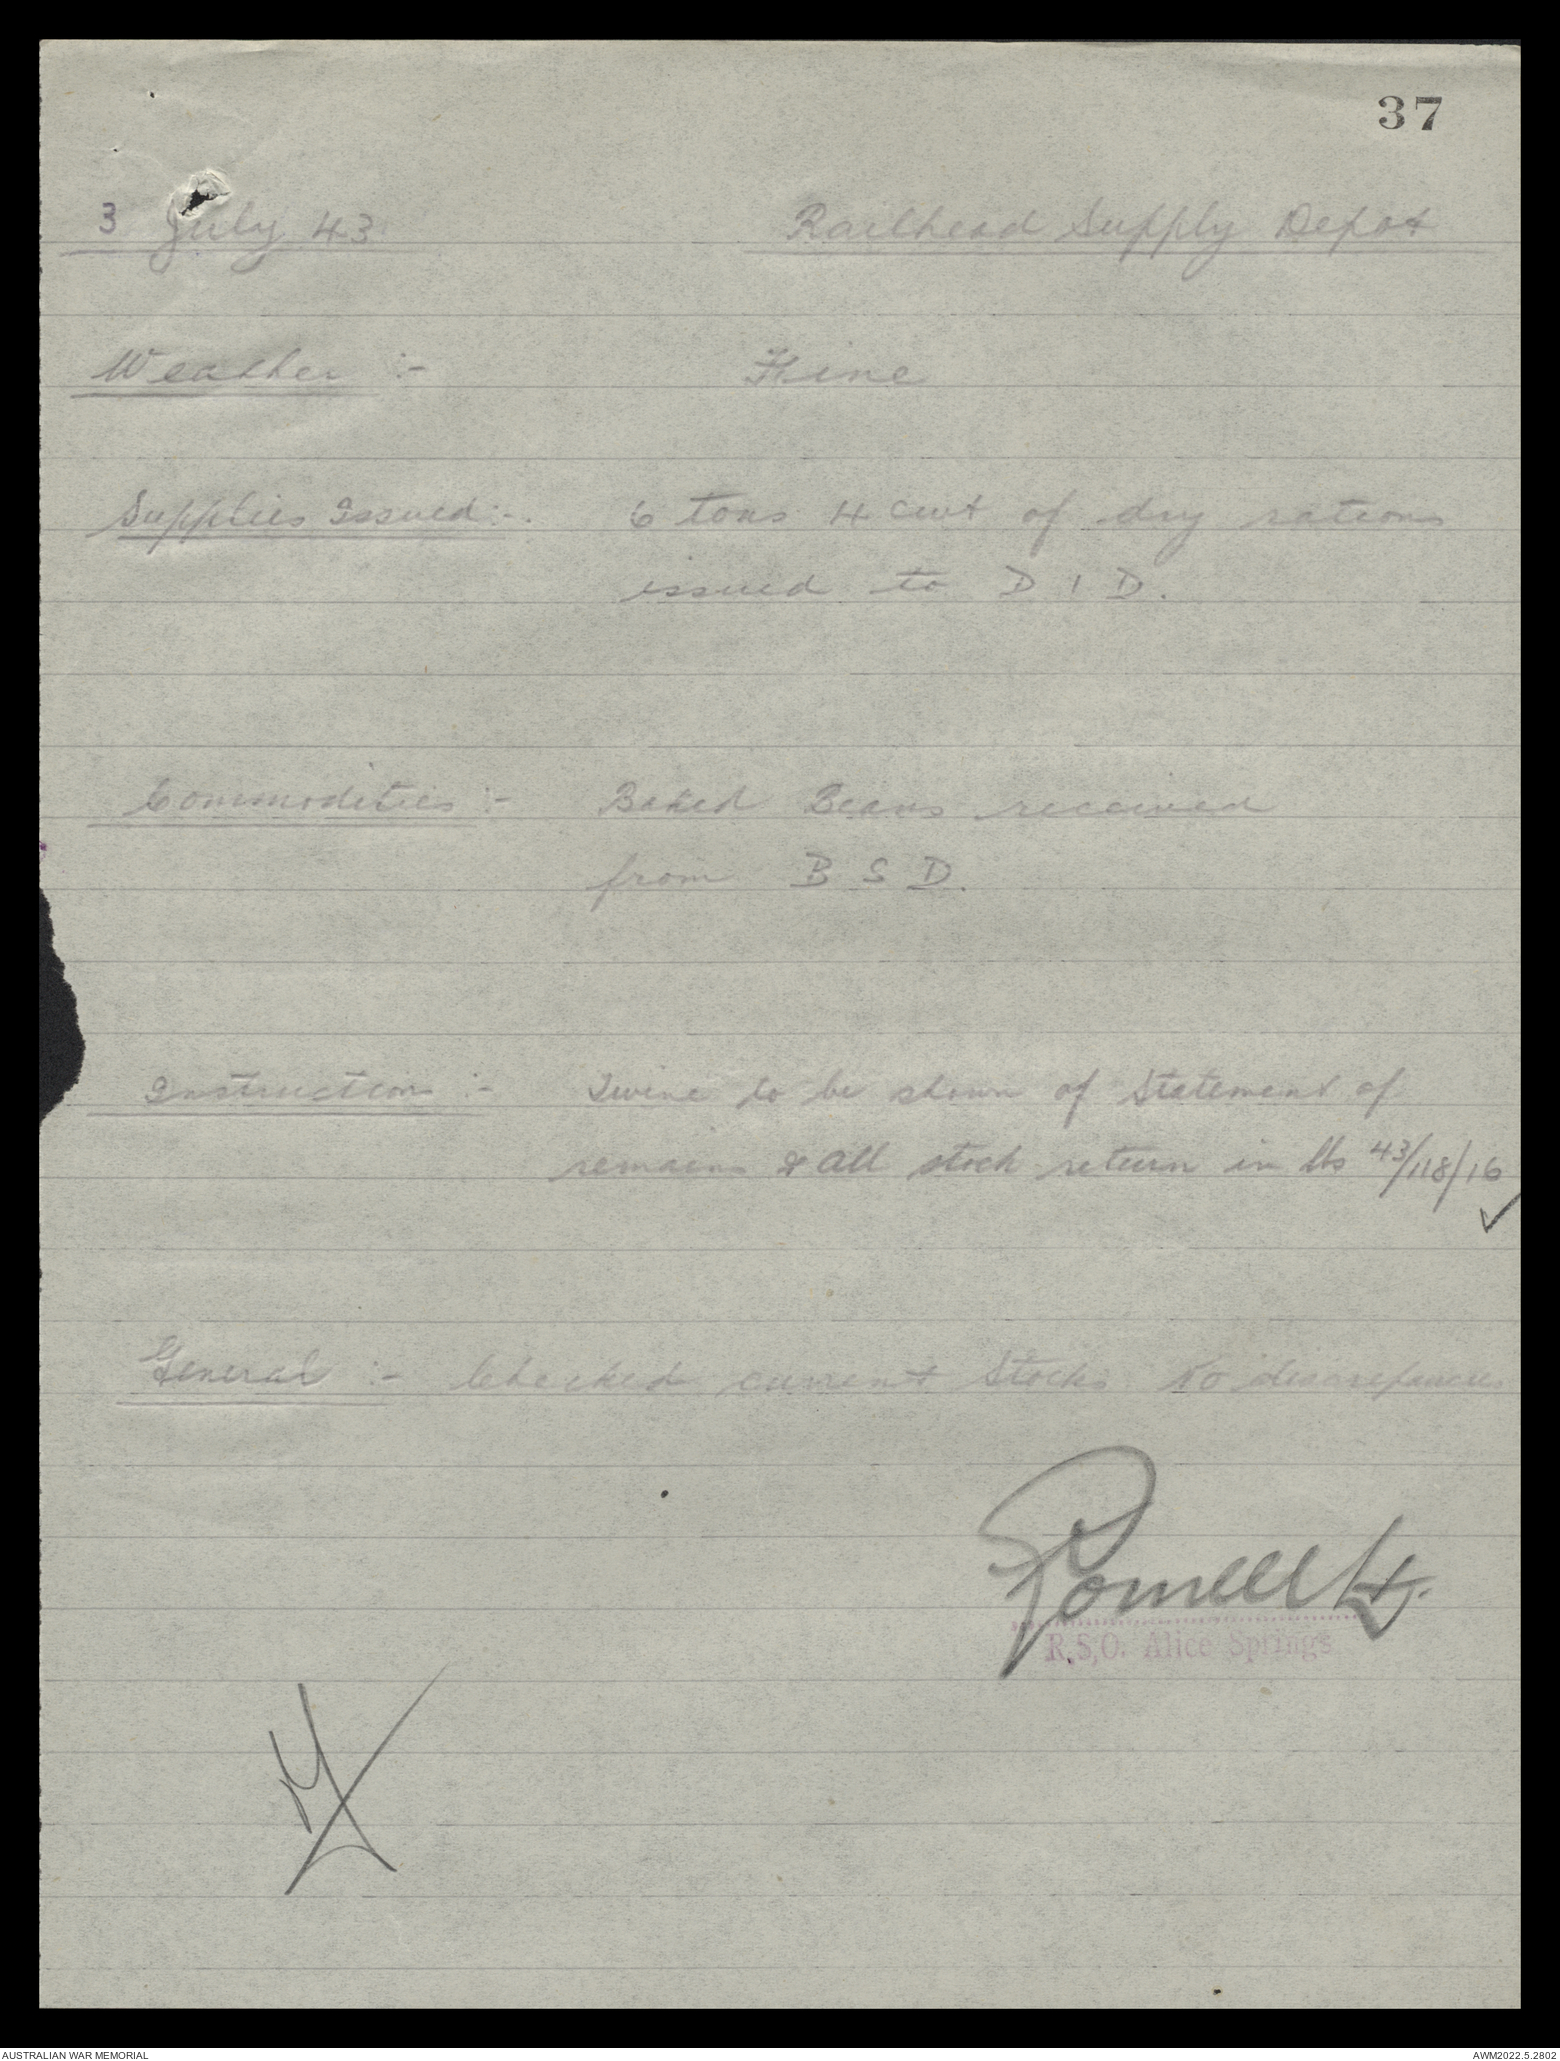 37
3 July 43 Railhead Supply Depot
Weather :- Fine
Supplies Issued :- 6 tons 4 cwt of dry rations
issued to D I D.
Commodities :- Baked Beans received
from B S D.
Instruction :- Twine to be shown of Statement of
remains & all stock return in lbs 43/118/16
General :- Checked current Stocks No discrepancies
Powell Lt.
R.S.O. Alice Springs
AUSTRALIAN WAR MEMORIAL AWM2022.5.2802